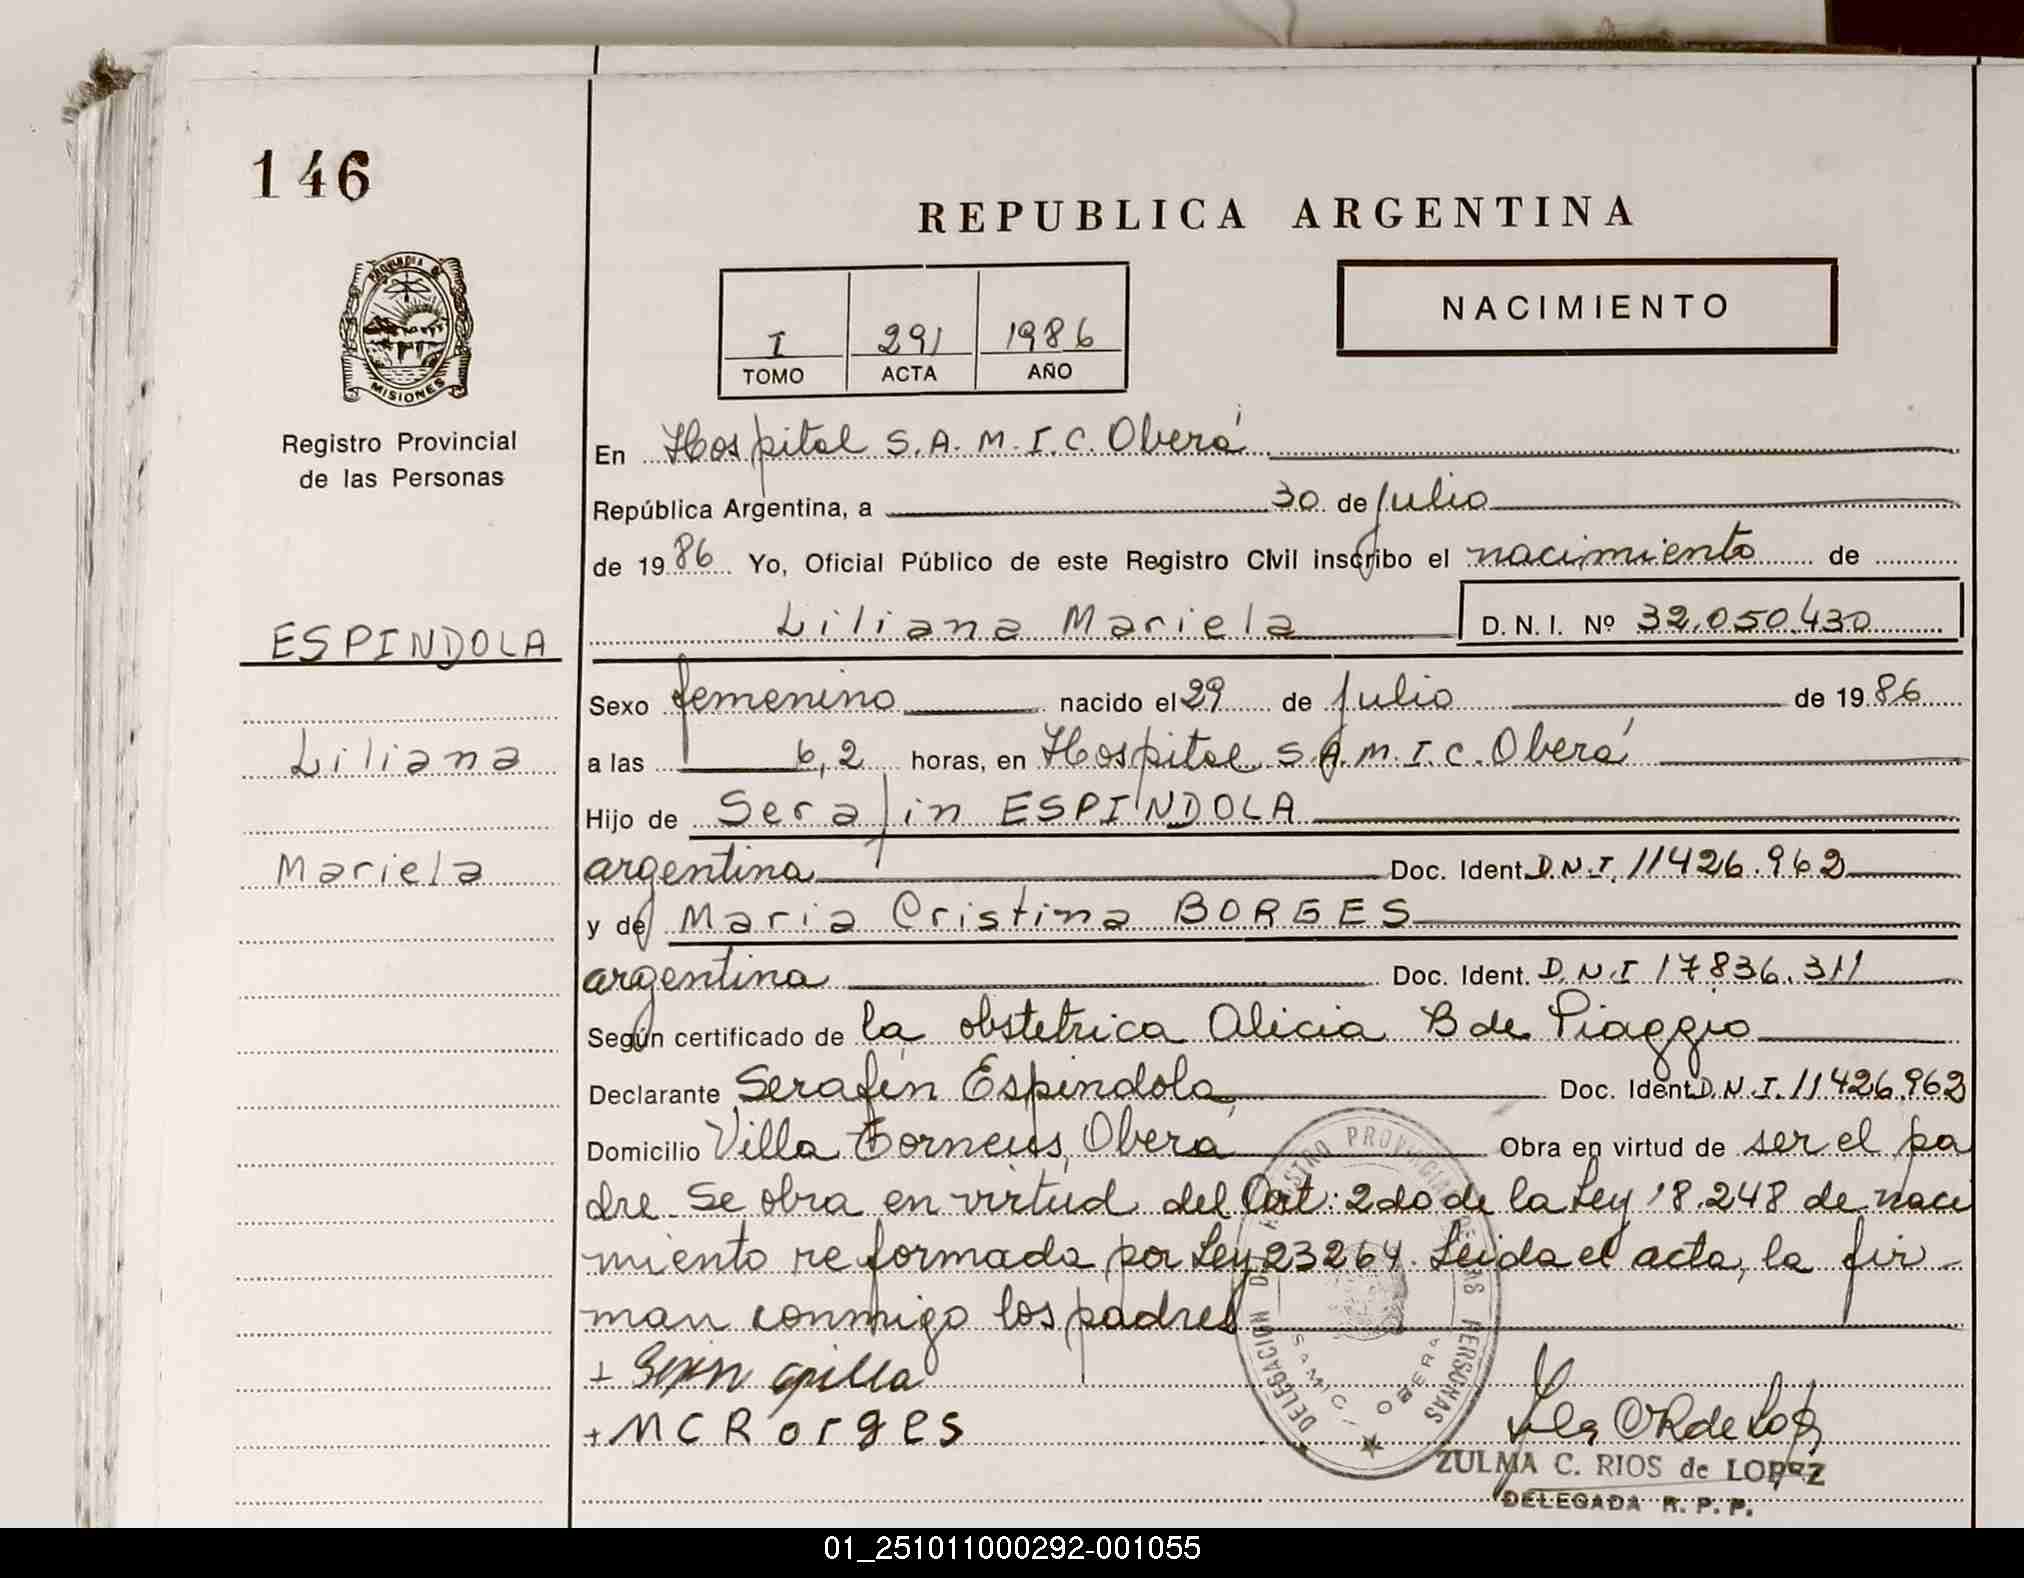 146
REPUBLICA ARGENTINA
NACIMIENTO
I 291 1986
TOMO ACTA AÑO
PROVINCIA DE
MISIONES
Registro Provincial
de las Personas
En Hospital S.A.M.I.C. Oberá
República Argentina, a 30 de julio
de 1986 Yo, Oficial Público de este Registro Civil inscribo el nacimiento de
Liliana Mariela D.N.I. Nº 32.050.430
ESPINDOLA
Liliana
Mariela
Sexo femenino nacido el 29 de julio de 1986
a las 6,2 horas, en Hospital S.A.M.I.C. Oberá
Hijo de Serafin ESPINDOLA
argentina Doc. Ident. D.N.I. 11426.962
y de Maria Cristina BORGES
argentina Doc. Ident. D.N.I 17836.311
Según certificado de la obstetrica Alicia B de Piaggio
Declarante Serafín Espindola Doc. Ident. D.N.I. 11426.962
Domicilio Villa Oberá Obra en virtud de ser el pa
dre. Se obra en virtud del Art: 2do de la Ley 18.248 de naci
miento reformada por Ley 23264. Leida el acta, la fir-
man conmigo los padres
+ M C Rorges
DELEGACION REGISTRO PROVINCIAL DE LAS PERSONAS
SAMIC - OBERA
ZULMA C. RIOS de LOPEZ
DELEGADA R. P. P.
01_251011000292-001055